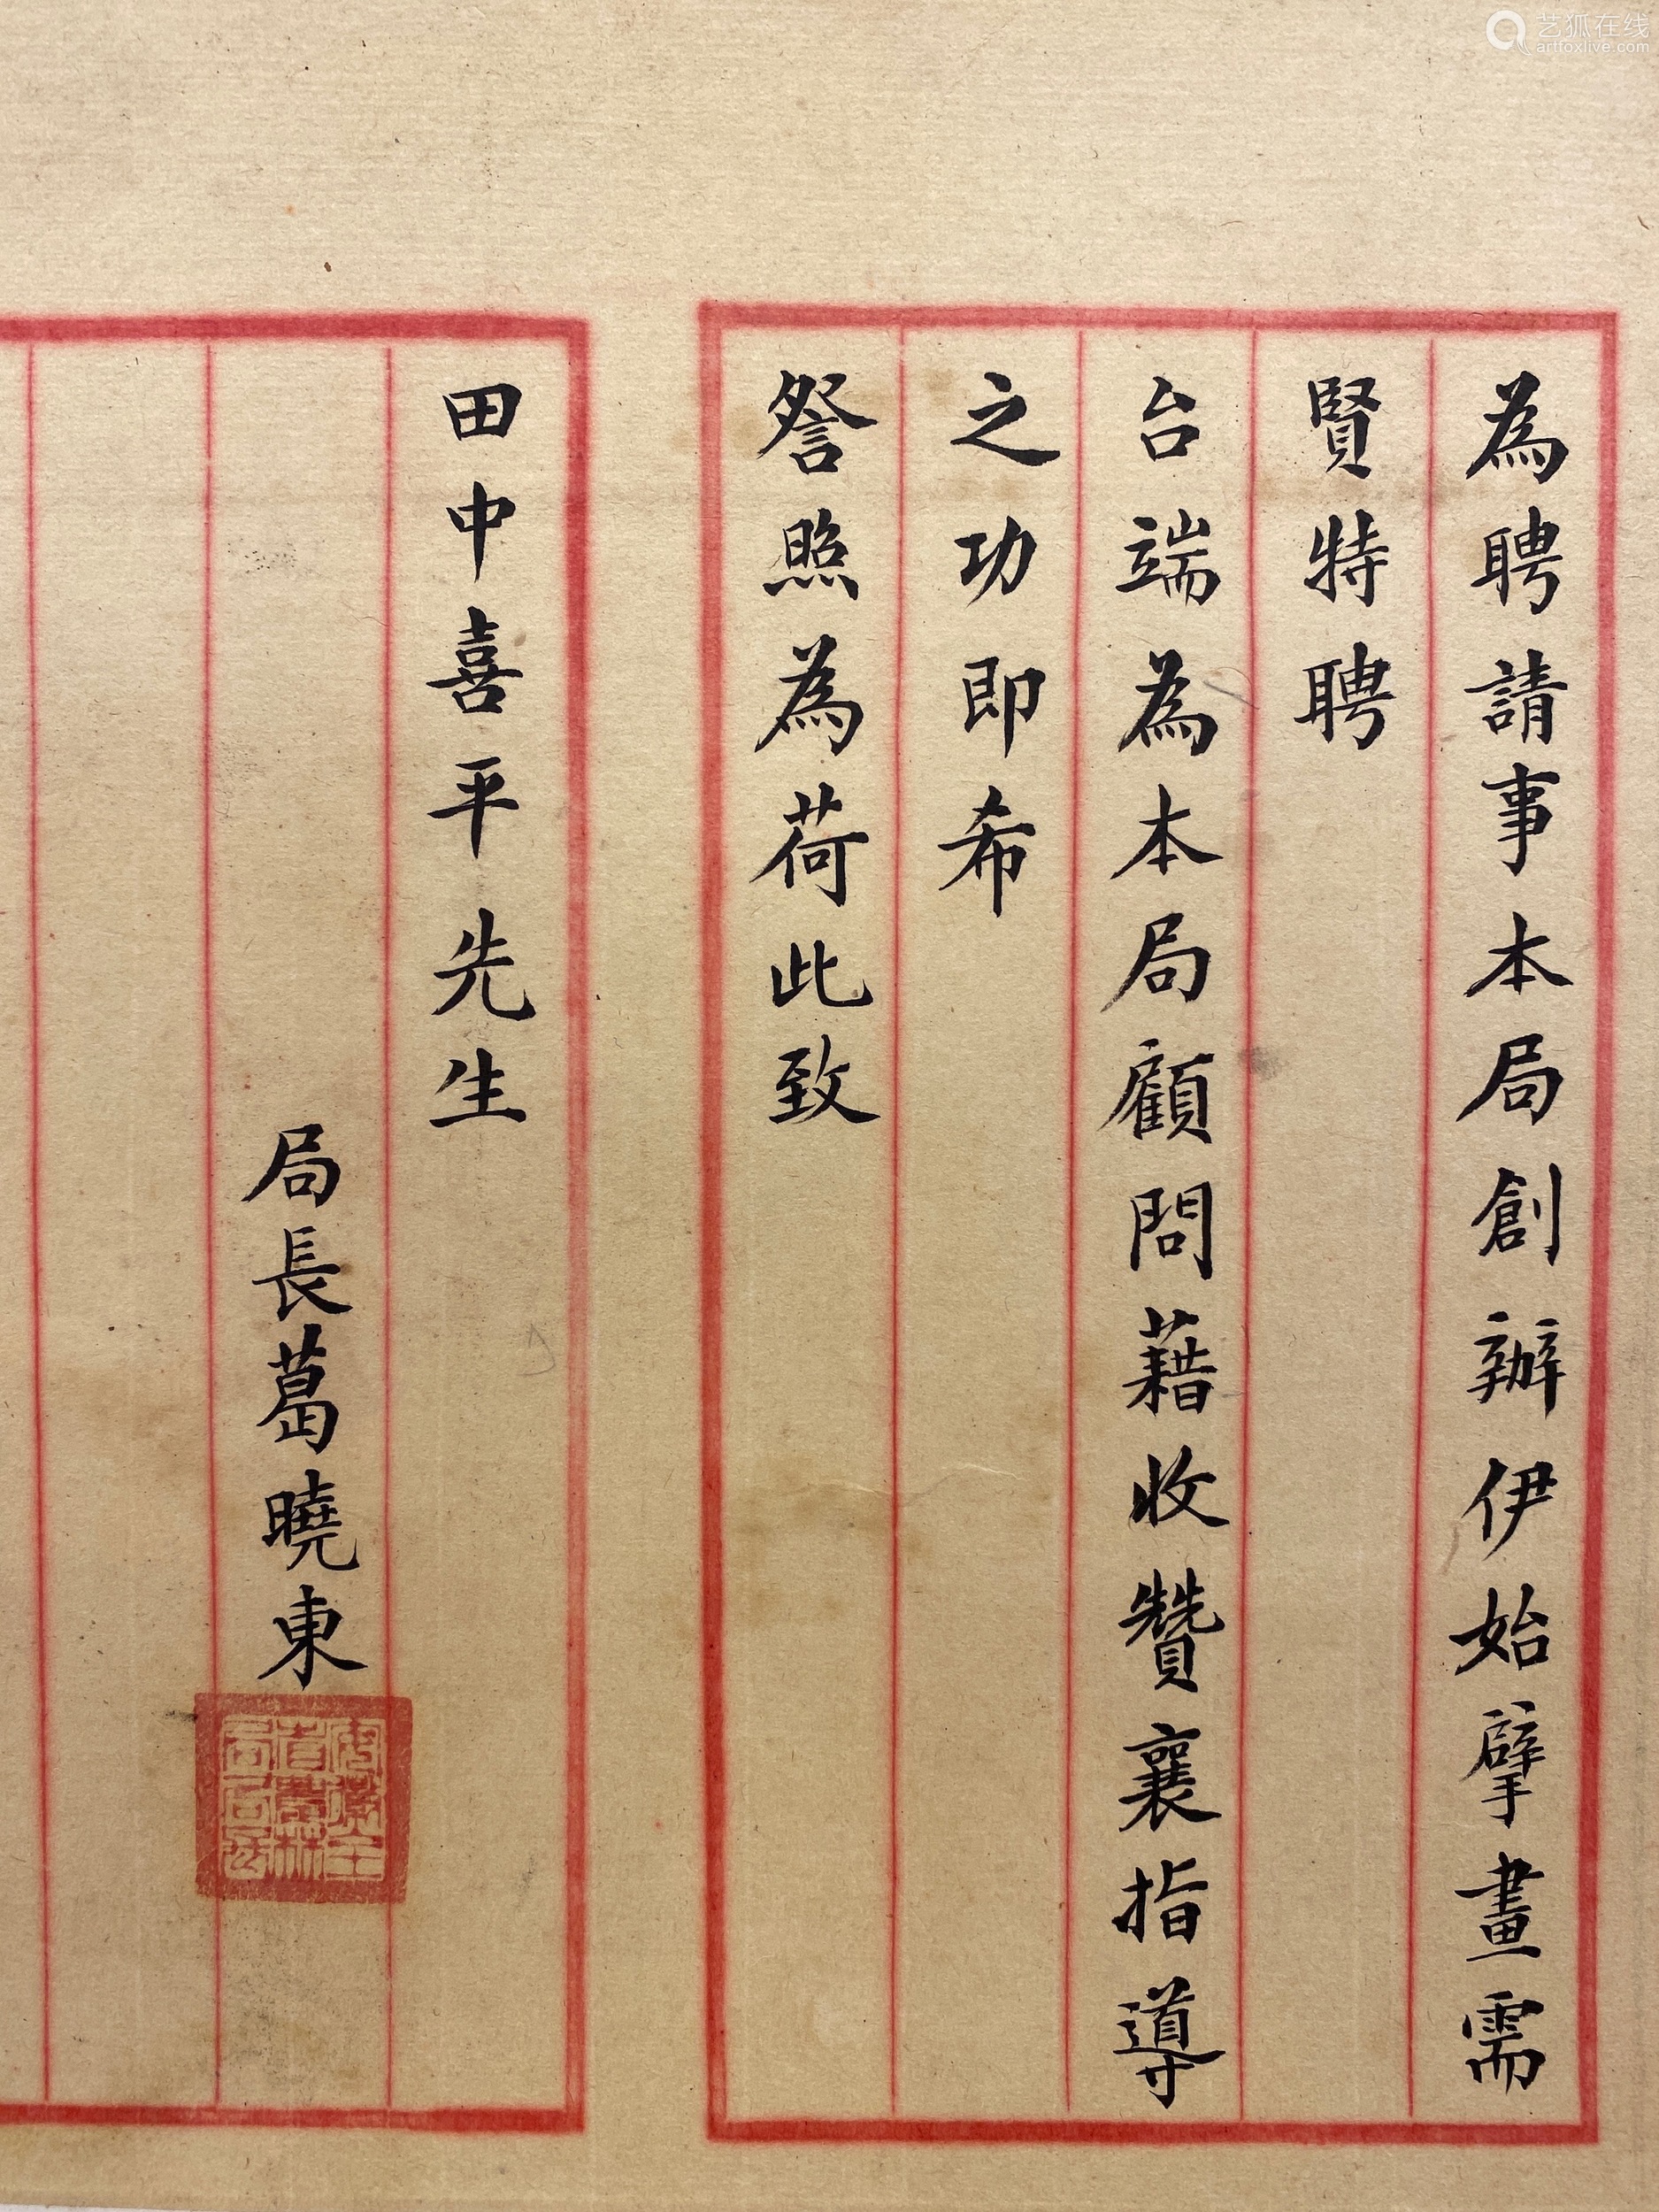 為聘請事本局創辦伊始擘畫需
賢特聘
台端為本局顧問藉收贊襄指導
之功即希
詧照為荷此致
田中喜平先生
局長葛曉東
艺狐在线
artfoxlive.com